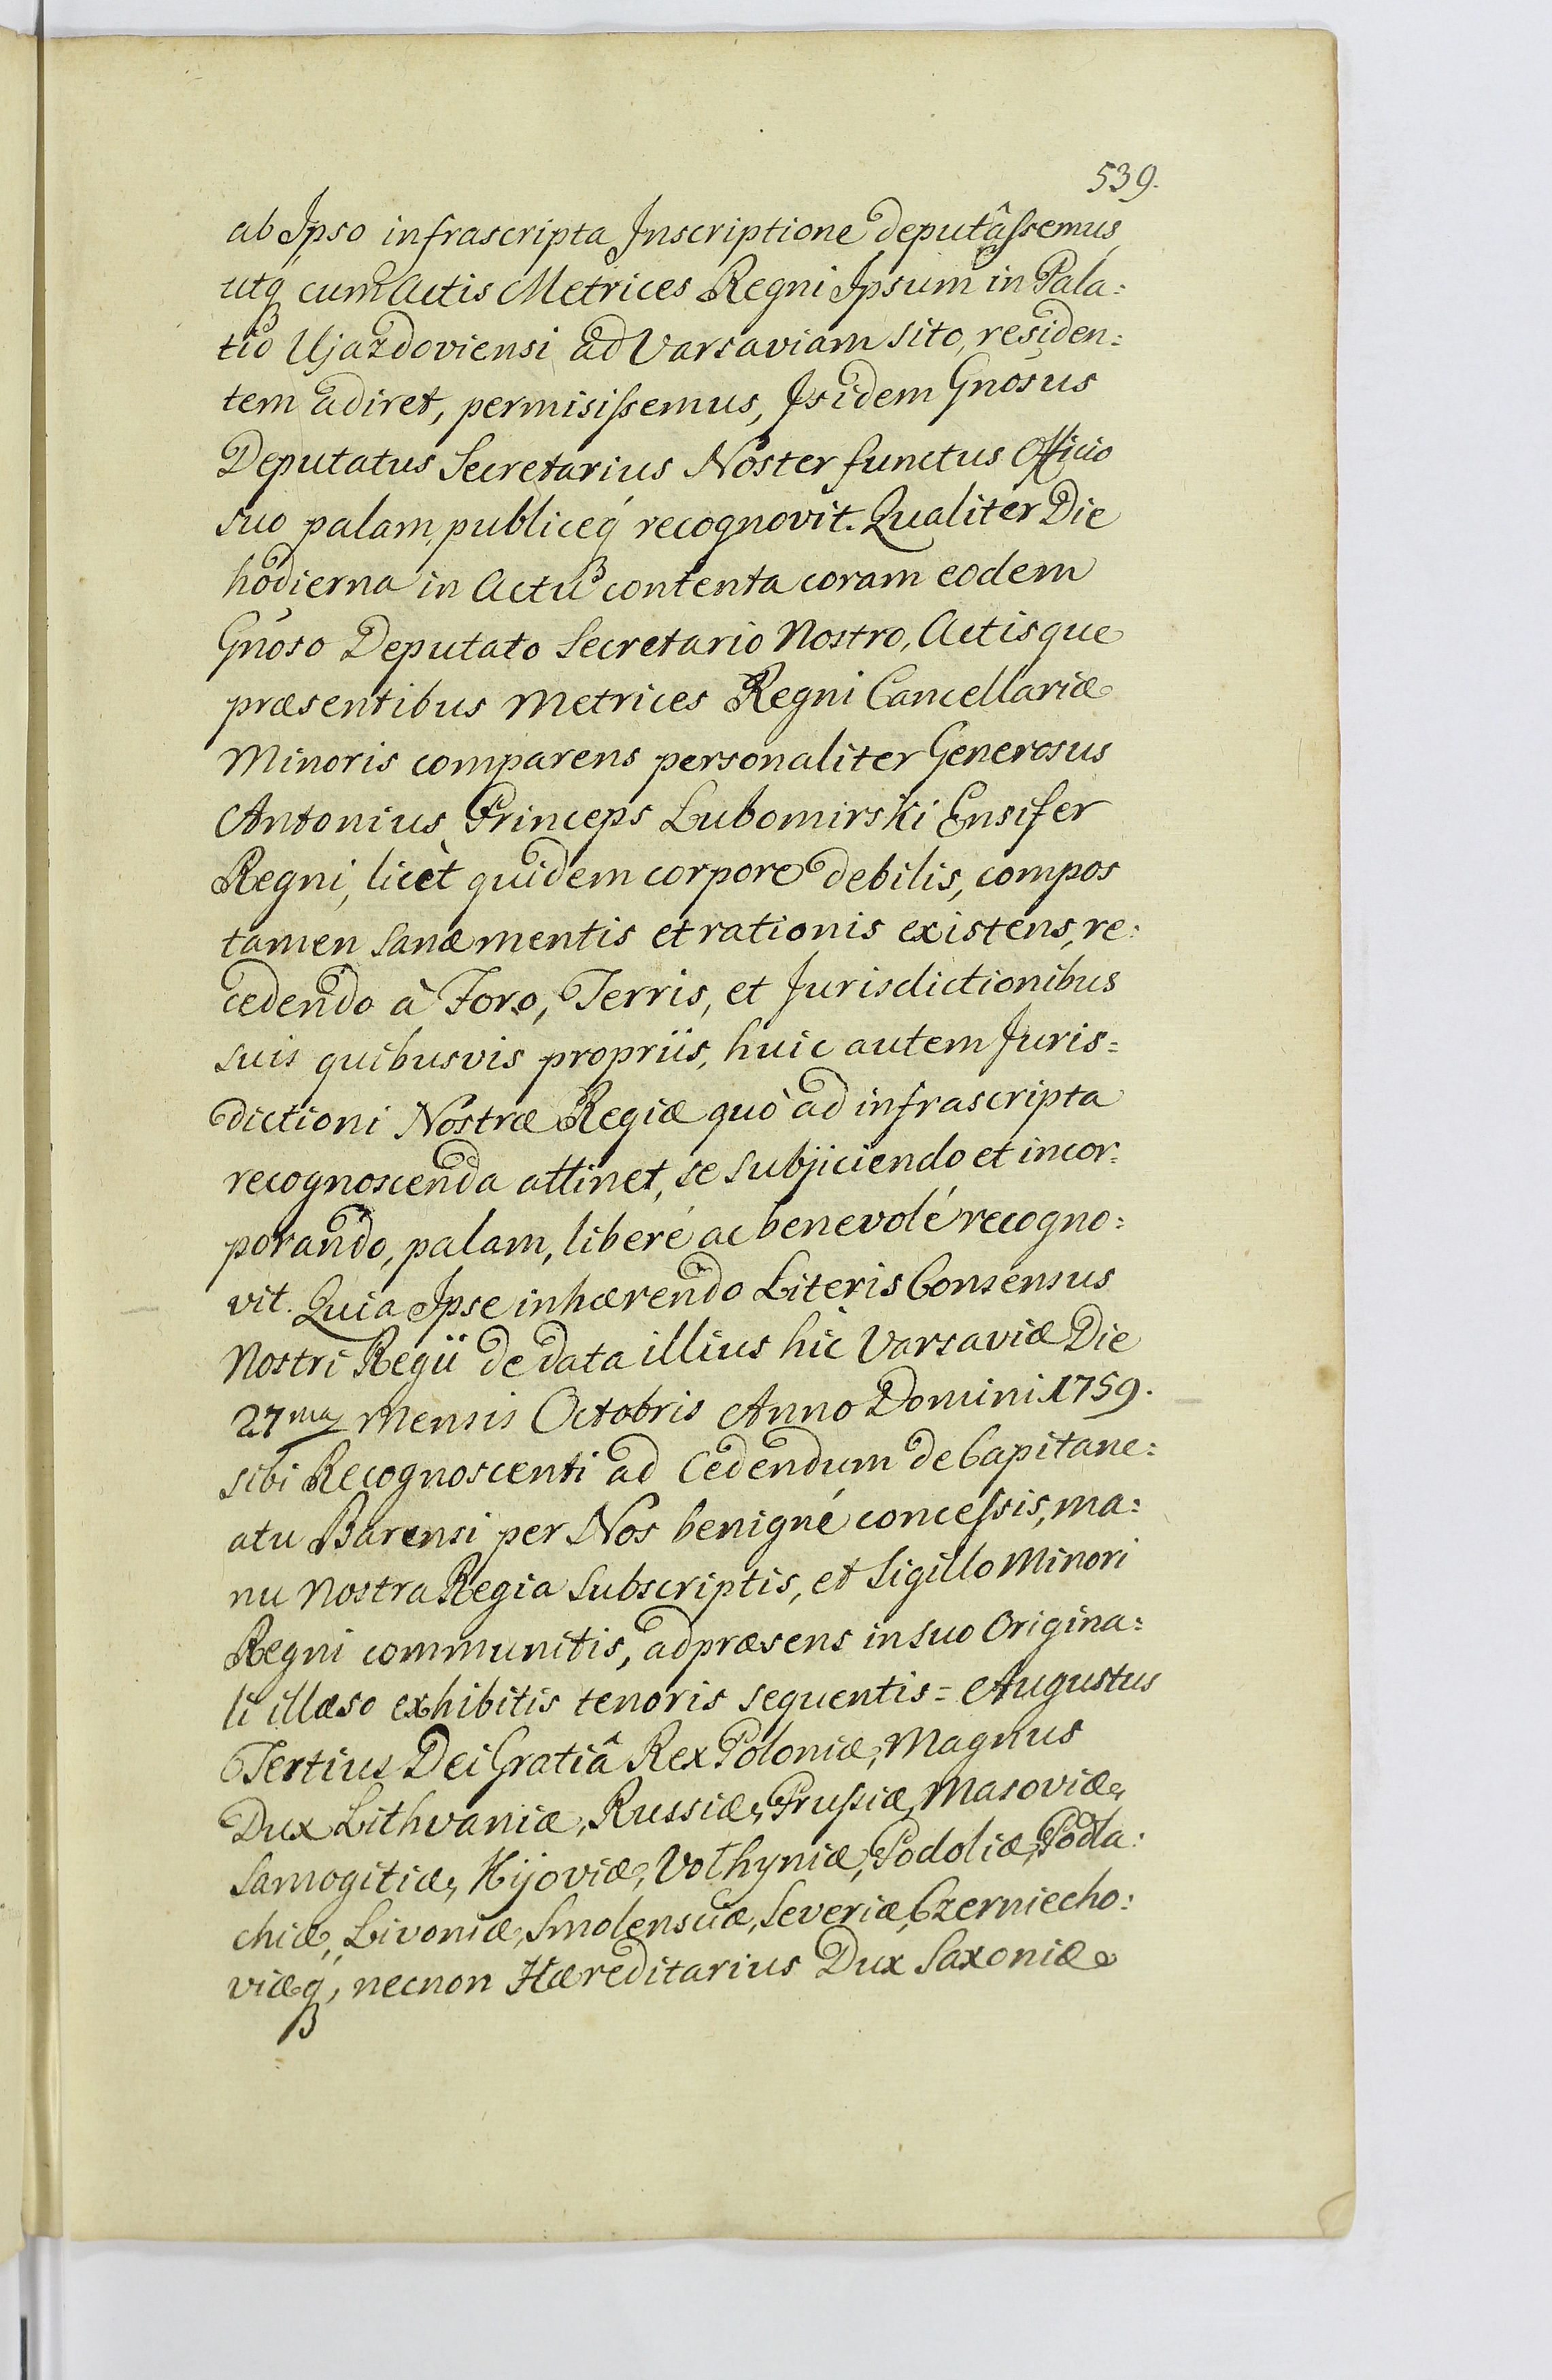 539.
ab Ipso infrascripta Inscriptione deputâssemus
utq́ cum Actis Metrices Regni Ipsum in Pala:
tio Ujazdoviensi ad Varsaviam sito, residen:
tem adiret, permisissemus, Isidem Gnosus
Deputatus Secretarius Noster functus Officio
suo palam publiceq́ recognovit. Qualiter Die
hodierna in Actu contenta coram eodem
Gnoso Deputato Secretario Nostro, Actisque
præsentibus Metrices Regni Cancellariæ
Minoris comparens personaliter Generosus
Antonius Princeps Lubomirski Ensifer
Regni, licèt quidem corpore debilis, compos
tamen sanæ mentis et rationis existens, re:
cedendo à Foro, Terris, et Jurisdictionibus
suis quibusvis propriis, huic autem Juris=
dictioni Nostræ Regiæ quò ad infrascripta
recognoscenda attinet, se subjiciendo et incor:
porando, palam, liberé ac benevolé recogno:
vit. Quia Ipse inhærendo Literis Consensus
Nostri Regii de data illius hic Varsaviæ Die
27ma Mensis Octobris Anno Domini 1759.
sibi Recognoscenti ad Cedendum de Capitane:
atu Barensi per Nos benigné concessis, ma:
nu Nostra Regia Subscriptis, et Sigillo Minori
Regni communitis, ad præsens in suo Origina:
li illæso exhibitis tenoris sequentis = Augustus
Tertius Dei Gratiâ Rex Poloniæ, Magnus
Dux Lithvaniæ, Russiæ, Prussiæ, Masoviæ,
Samogitiæ, Kijoviæ, Volhyniæ, Podoliæ, Podla:
chiæ, Livoniæ, Smolensciæ, Severiæ, Czerniecho:
viæq́, necnon Hæreditarius Dux Saxoniæ